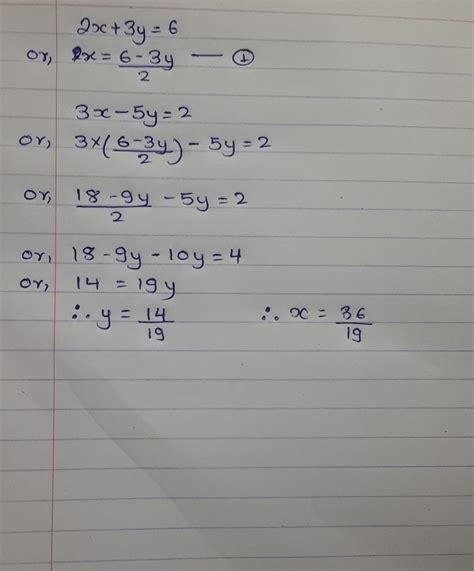 2x+3y=6
or, x = 6-3y/2 — ①
3x-5y=2
or, 3×(6-3y/2) - 5y=2
or, 18-9y/2 -5y=2
or, 18-9y-10y=4
or, 14 = 19y
∴ y = 14/19 ∴ x = 36/19